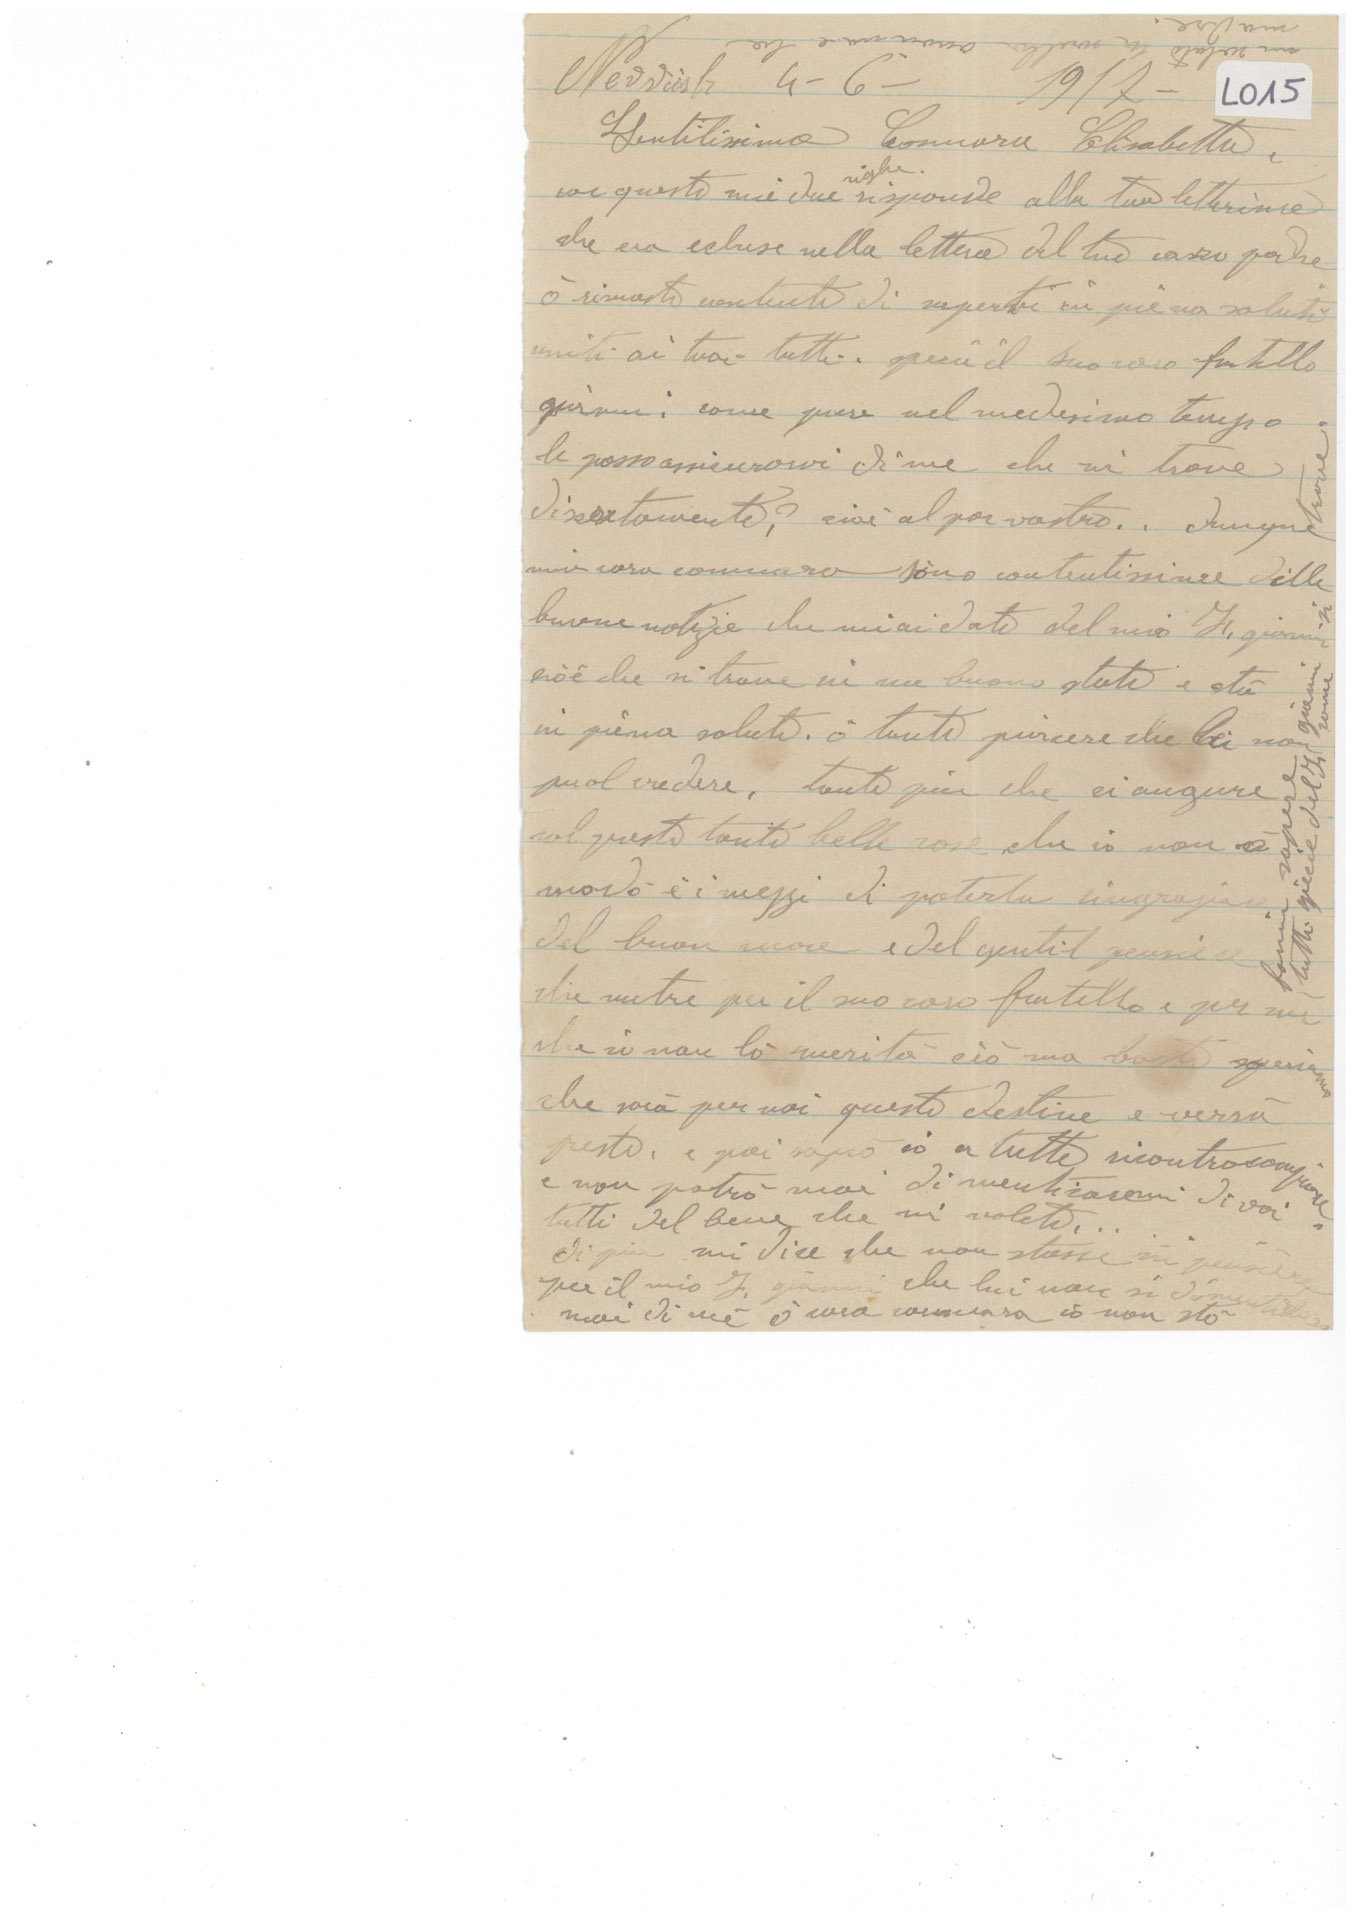 4-6- 1917-
LO15
Gentilissima Commara Elisabetta,
coi questi mie due righe. risponde alla tua letterina
che era ecluse nella lettera del tuo caro padre
ò rimasto contento di saperti in piena saluti
uniti ai tuoi tutti. specie il suo caro fratello
come pure nel medesimo tempo
le posso assicurarvi di me che mi trove
discretamente, cioè al par vostro.. dunque
mia cara commara sono contentissime delle
buone notizie che mi ai dato del mio F. gianni
cioè che si trove in une buono stato e sta
in piena salute. ò tanto piacere che lei non
puol credere, tanto piu che ci augure
sol presto tanti belle cose che io non ò
modo è i mezzi di poterla ringraziare
del buon cuore e del gentil pensiere
che nutre per il suo caro fratello e per me
che io non lo merità ciò ma basta speriamo
che sarà per noi questo destine e verrà
presto. e poi saprò io a tutto ricontracompiare
e non potrò mai di menticarmi di voi
tutti del bene che mi volete...
di piu mi dice che non stasse in pensiere
per il mio F. gianni che lui non si dimentichera
mai di me ò cara commara io non stò
fammi sapere
tutti specie del F. gianni come si trove.
mi saluti la madre.